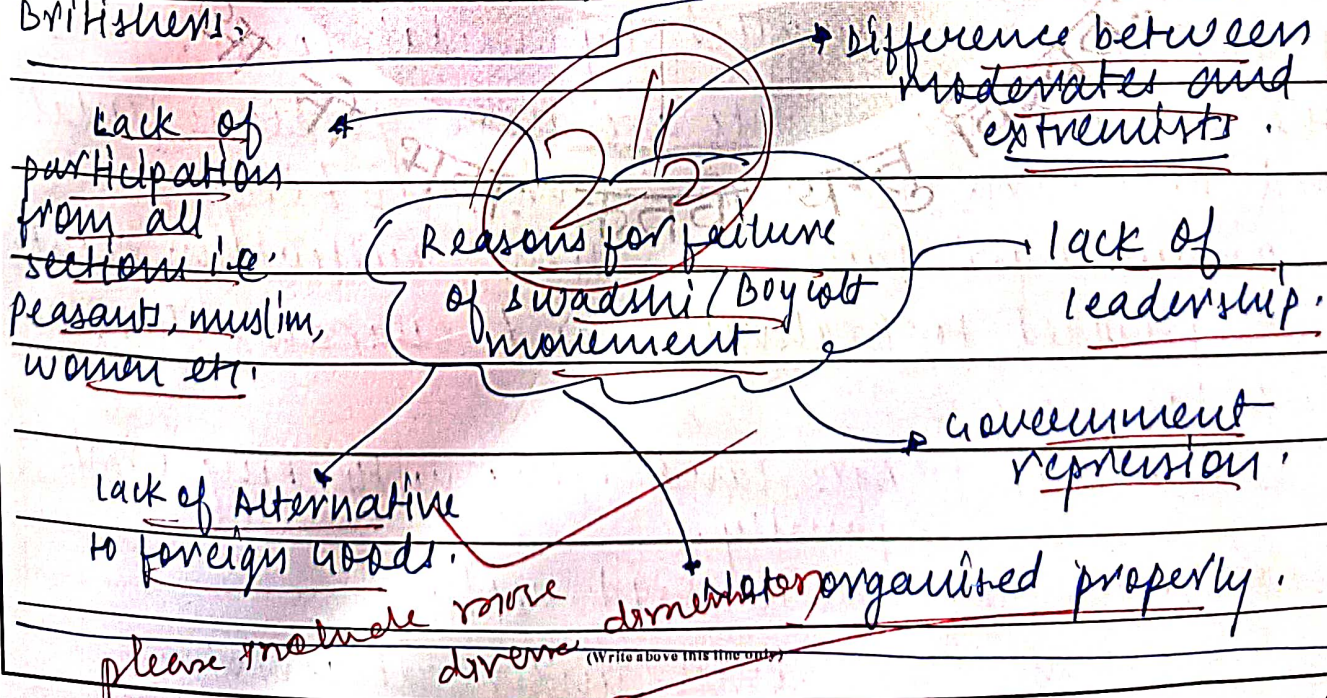 Britishers.
Difference between
moderates and
extremists.
Lack of
participation
from all
sections i.e.
peasants, muslim,
women etc.
2 1/2
Reasons for failure
of swadshi / Boycott
movement
lack of
leadership.
Government
repression.
lack of Alternative
to foreign Goods.
organised properly.
please include more
diverse dimension
(Write above this line only)